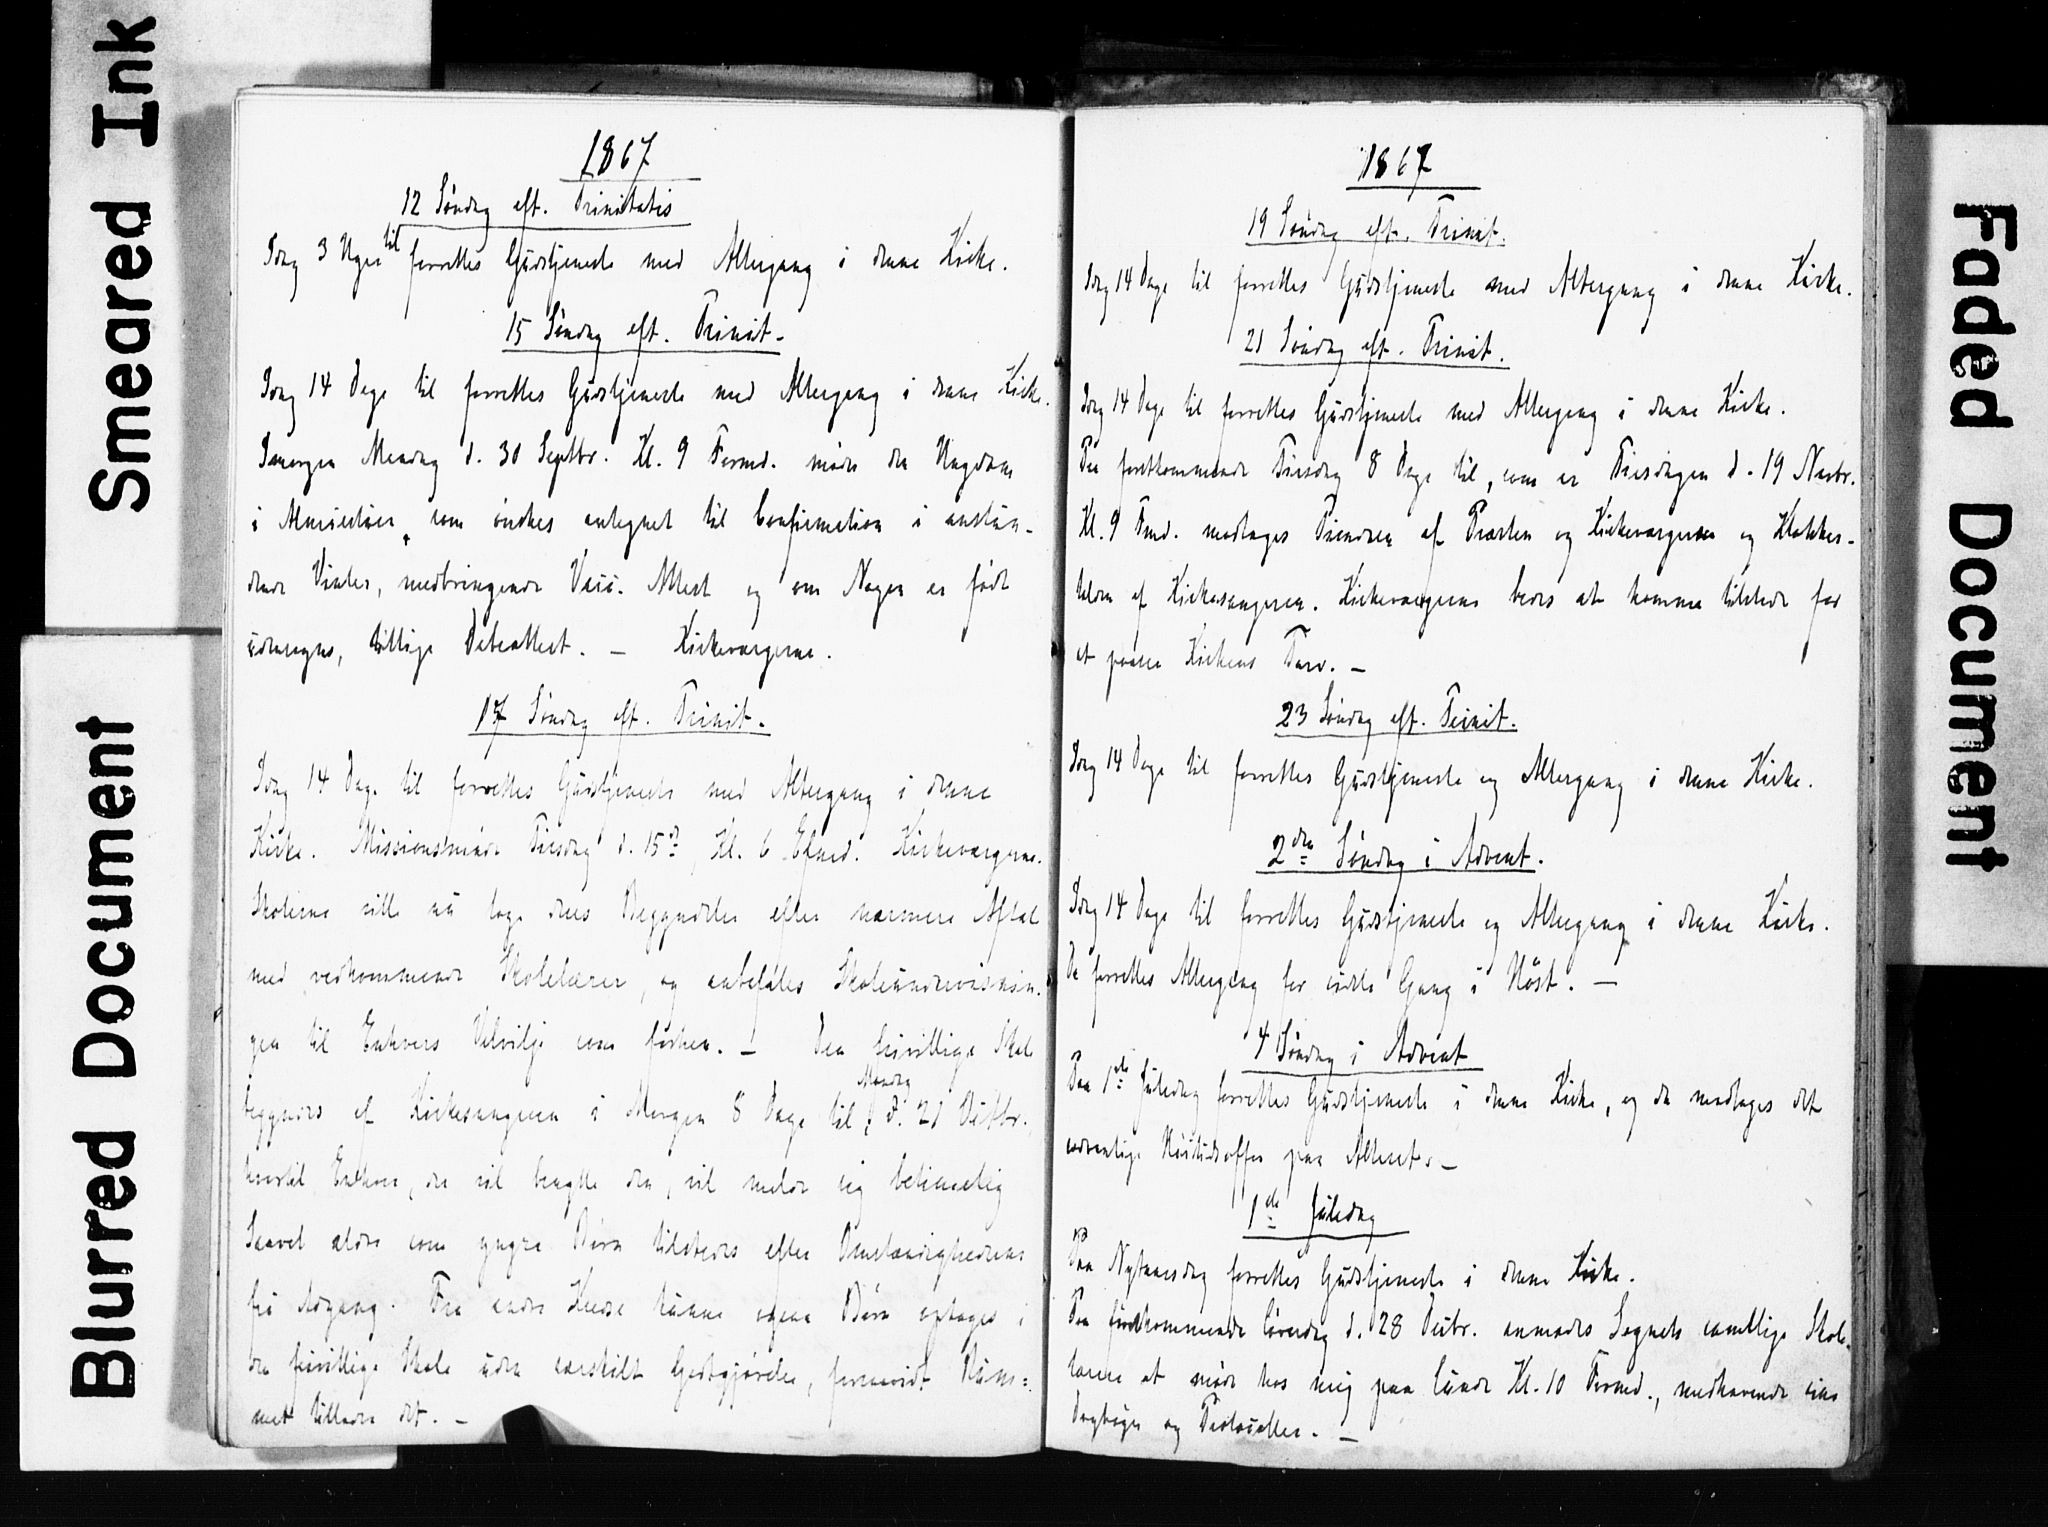 Smeared Ink
Blurred Document
Faded Document
1867
12 Søndag eft. Trinitatis
Idag 3 Uger til forrettes Gudstjeneste med Altergang i denne Kirke.
15 Søndag eft. Trinit.
Idag 14 Dage til forrettes Gudstjeneste med Altergang i denne Kirke.
Imorgen Mandag d. 30 Septbr. Kl. 9 Formd. møde den Ungdom
i som ønskes antegnet til Confirmation i anstun-
dende Vinter, medbringende Vacc. Attest og om Nogen er født
udensogns, tillige Døbeattest. – Kirkeværgerne.
17 Søndag eft. Trinit.
Idag 14 Dage til forrettes Gudstjeneste med Altergang i denne
Kirke. Missionsmøde Tirsdag d. 15de, Kl. 6 Efmd. Kirkeværgerne.
Skolerne ville nu tage deres Begyndelse efter nærmere Aftal
med vedkommende Skolelærer, og anbefales Skoleundervisnin-
gen til Enhvers Velvilje som forhen. – Den frivillige Skole
begyndes af Kirkesangeren i Morgen 8 Dage til, Mandag d. 21 Octbr.
hvortil Enhver, der vil benytte den, vil melde sig betimelig
Saavel ældre som yngre Børn tilstedes efter Omstændighederne
fri Adgang. Fra andre Kredse kunne ogsaa Børn optages i
den frivillige Skole uden særskilt Godtgjørelse, forsaavidt Rum-
met tillader det. –
1867
19 Søndag eft. Trinit.
Idag 14 Dage til forrettes Gudstjeneste med Altergang i denne Kirke.
21 Søndag eft. Trinit.
Idag 14 Dage til forrettes Gudstjeneste med Altergang i denne Kirke.
Paa førstkommende Tirsdag 8 Dage til, som er Tirsdagen d. 19 Novbr.
Kl. 9 Fmd. modtages Tienden af Præsten og Kirkeværgerne og Klokker-
tolden af Kirkesangeren. Kirkeværgerne bedes at komme tilstede for
at paasee Kirkens Tarv. –
23 Søndag eft. Trinit.
Idag 14 Dage til forrettes Gudstjeneste og Altergang i denne Kirke.
2den Søndag i Advent.
Idag 14 Dage til forrettes Gudstjeneste og Altergang i denne Kirke.
Da forrettes Altergang for sidste Gang i Høst. –
4 Søndag i Advent
Paa 1ste Juledag forrettes Gudstjeneste i denne Kirke, og da modtages det
sædvanlige Høitidsoffer paa Alteret. –
1ste Juledag
Paa Nytaarsdag forrettes Gudstjeneste i denne Kirke.
Paa førstkommende Løverdag d. 28 Decbr. anmodes Sognets samtlige Skole-
lærere at møde hos mig paa Lunde Kl. 10 Formd., medhavende sine
Dagbøger og Protocoller. –